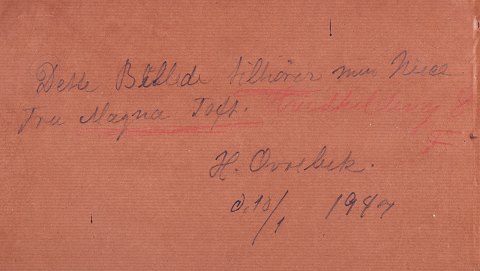 Dette Billede tilhører min Niece
Fru Magna Toft.
H. Ovrebek.
d. 10/1 1947